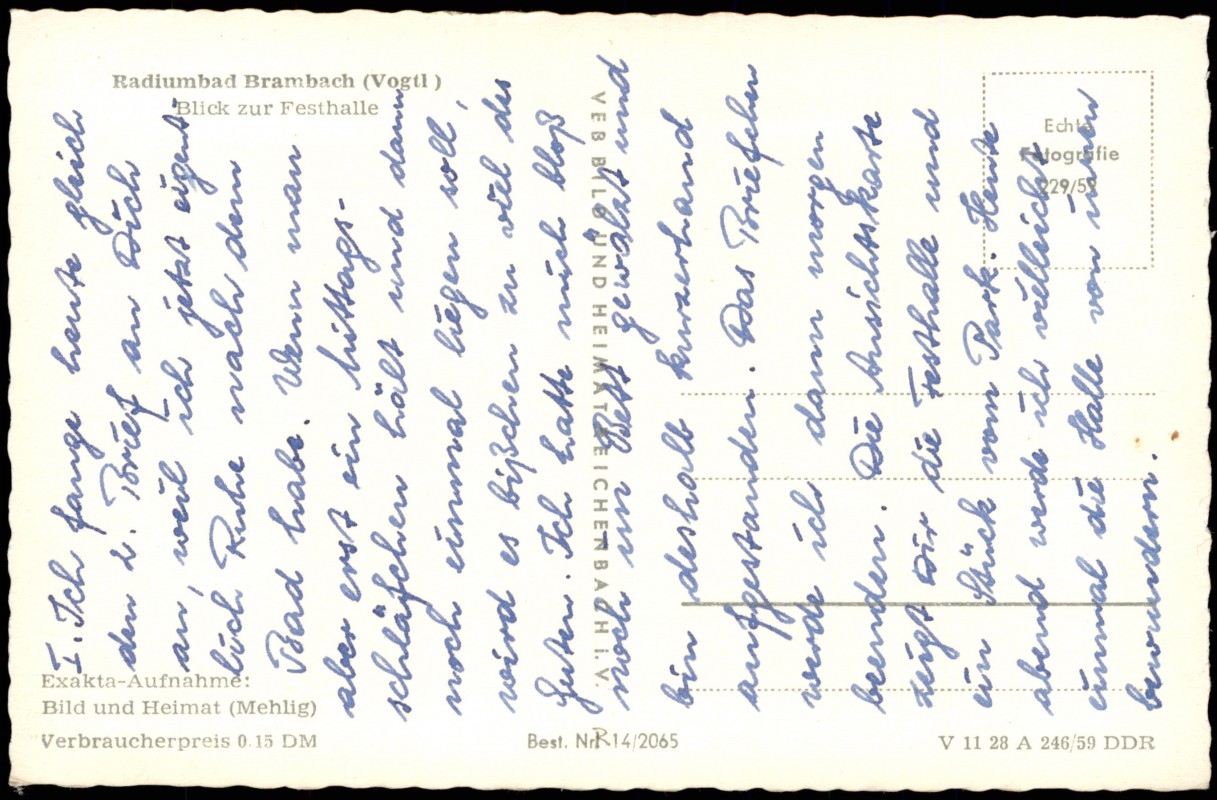 Radiumbad Brambach (Vogtl )
Blick zur Festhalle
I. Ich fange heute gleich
den 2. Brief an Dich
an, weil ich jetzt eigent
lich Ruhe nach dem
Bad habe. Wenn man
aber erst ein Mittags-
schläfchen hält und dann
noch einmal liegen soll,
wird es bißchen zu viel des
Guten. Ich hatte mich bloß
noch im Bett gewälzt und
bin deshalb kurzerhand
aufgestanden. Das Briefchen
werde ich dann morgen
beenden. Die Ansichtskarte
zeigt Dir die Festhalle und
ein Stück vom Park. Heute
abend werde ich vielleicht
einmal die Halle von innen
bewundern.
VEB BILD UND HEIMAT REICHENBACH i. V.
Echte
Fotografie
229/59
Exakta-Aufnahme:
Bild und Heimat (Mehlig)
Verbraucherpreis 0.15 DM
Best. Nr. R 14/2065
V 11 28 A 246/59 DDR